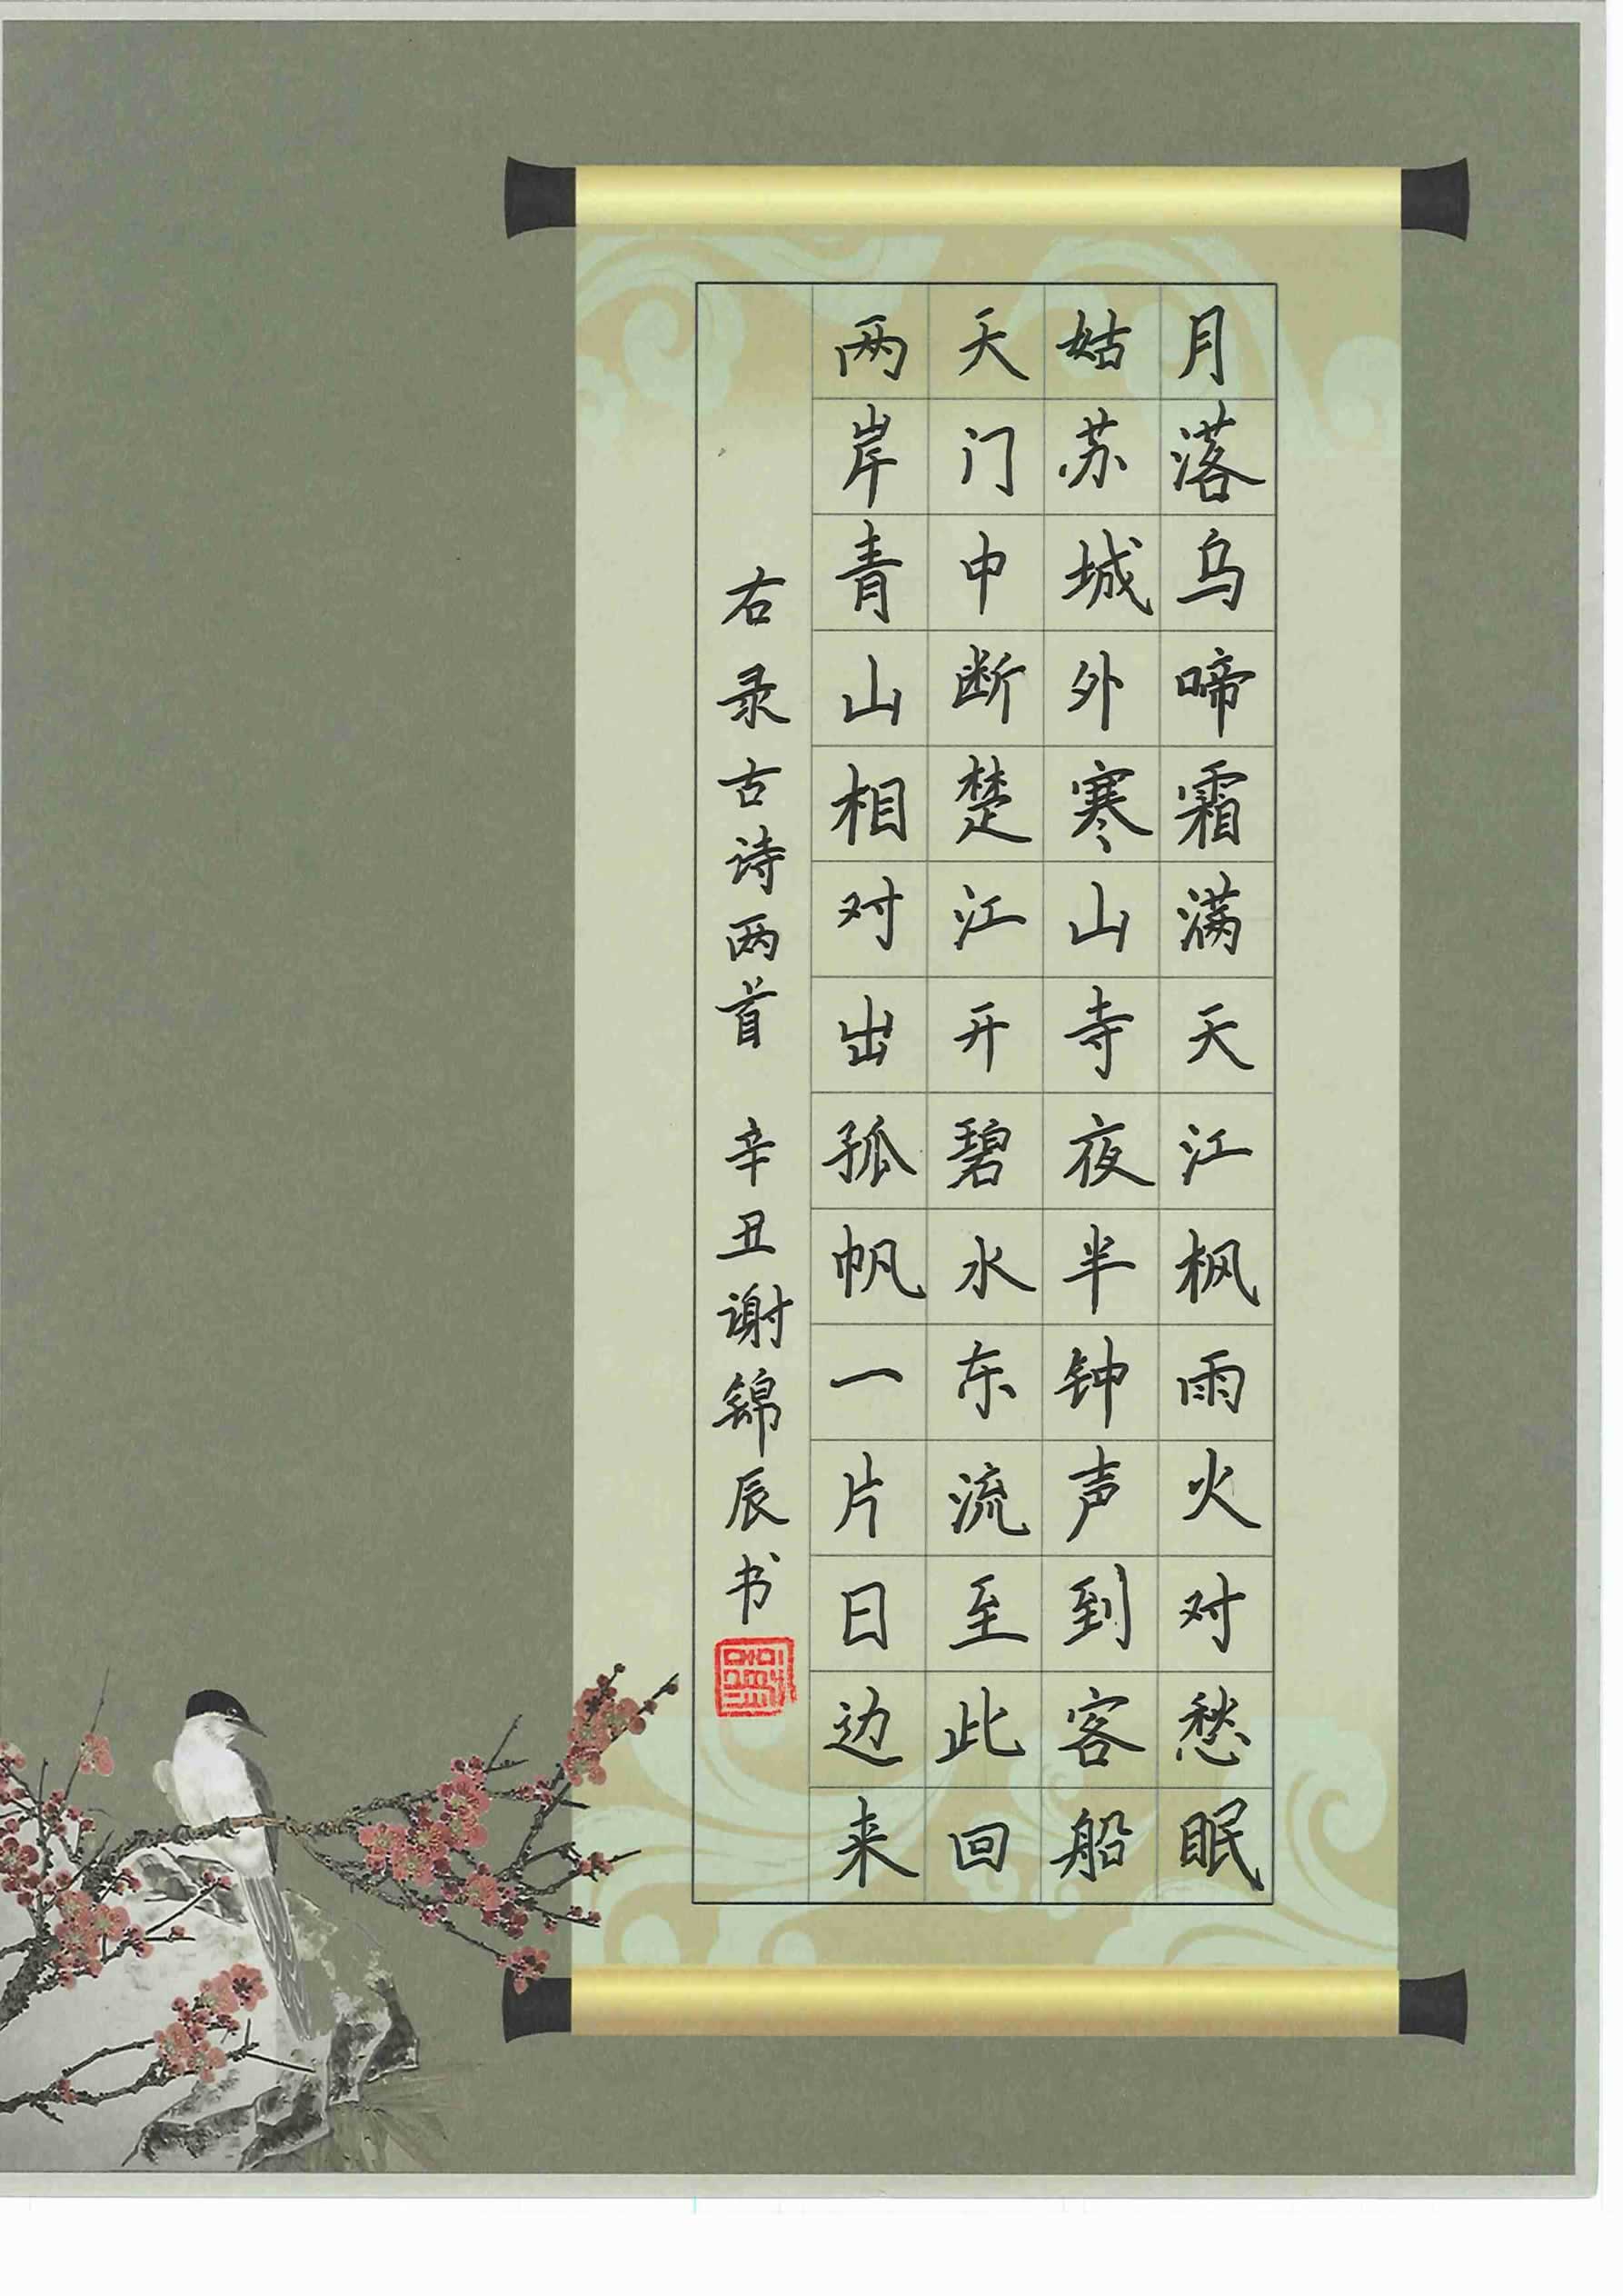 月落乌啼霜满天江枫雨火对愁眠
姑苏城外寒山寺夜半钟声到客船
天门中断楚江开碧水东流至此回
两岸青山相对出孤帆一片日边来
右录古诗两首 辛丑谢锦辰书